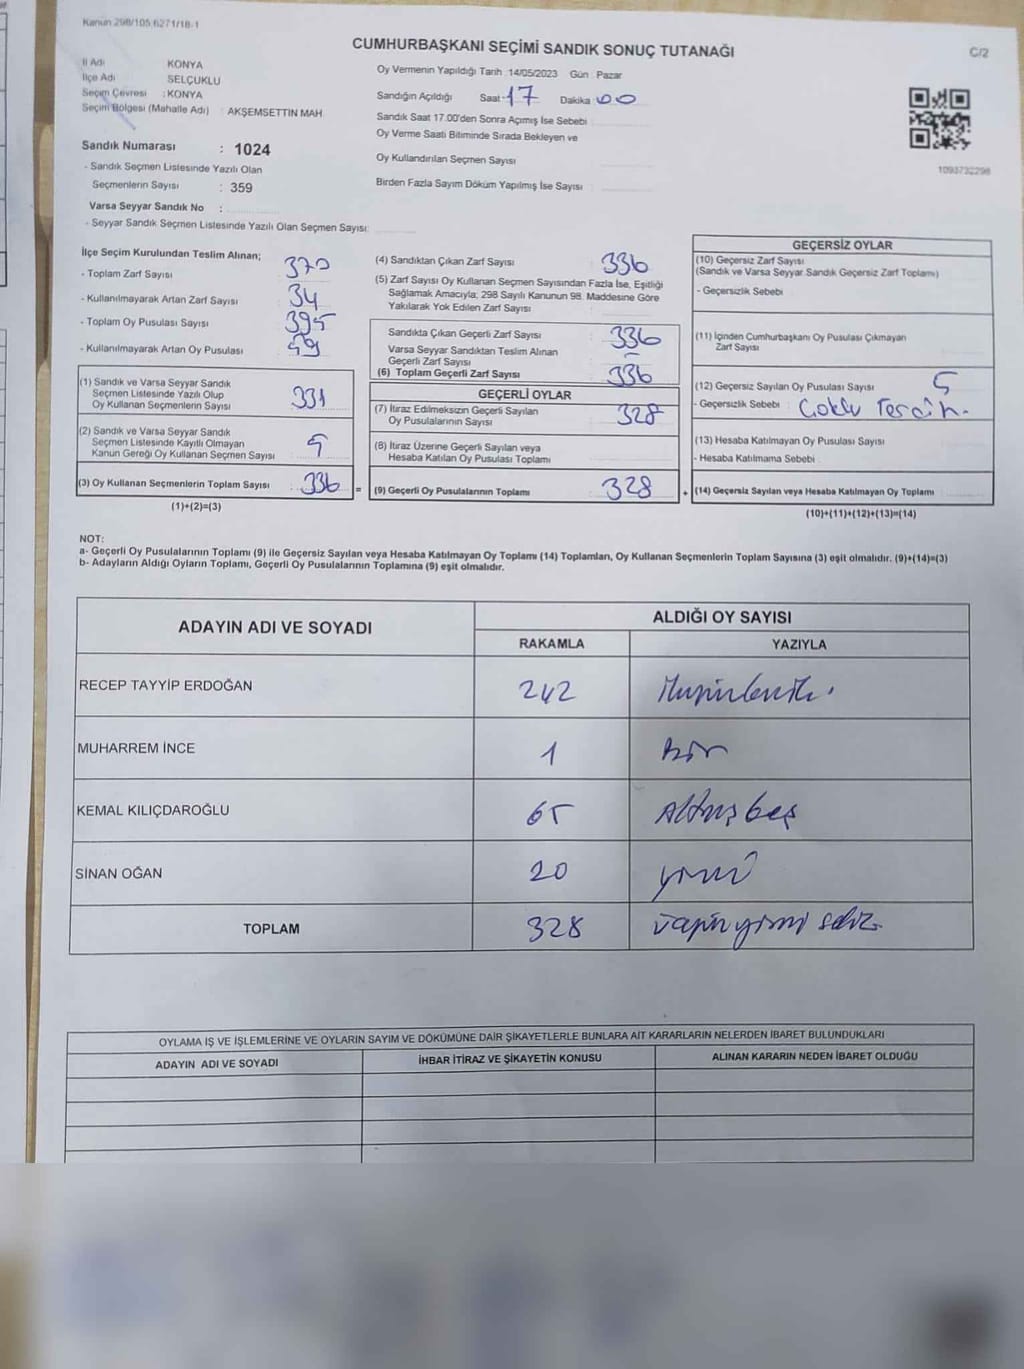 Kanun 298/105 6271/18-1
CUMHURBAŞKANI SEÇİMİ SANDIK SONUÇ TUTANAĞI
C/2
İl Adı KONYA
İlçe Adı SELÇUKLU
Seçim Çevresi : KONYA
Seçim Bölgesi (Mahalle Adı) : AKŞEMSETTİN MAH.
Sandık Numarası : 1024
- Sandık Seçmen Listesinde Yazılı Olan
Seçmenlerin Sayısı : 359
Varsa Seyyar Sandık No :
- Seyyar Sandık Seçmen Listesinde Yazılı Olan Seçmen Sayısı:
Oy Vermenin Yapıldığı Tarih : 14/05/2023 Gün : Pazar
Sandığın Açıldığı Saat 17 Dakika 00
Sandık Saat 17.00'den Sonra Açımış İse Sebebi
Oy Verme Saati Bitiminde Sırada Bekleyen ve
Oy Kullandırılan Seçmen Sayısı
Birden Fazla Sayım Döküm Yapılmış İse Sayısı
1093732298
İlçe Seçim Kurulundan Teslim Alınan;
- Toplam Zarf Sayısı 370
- Kullanılmayarak Artan Zarf Sayısı 34
- Toplam Oy Pusulası Sayısı 395
- Kullanılmayarak Artan Oy Pusulası 59
(1) Sandık ve Varsa Seyyar Sandık
Seçmen Listesinde Yazılı Olup
Oy Kullanan Seçmenlerin Sayısı 331
(2) Sandık ve Varsa Seyyar Sandık
Seçmen Listesinde Kayıtlı Olmayan
Kanun Gereği Oy Kullanan Seçmen Sayısı 5
(3) Oy Kullanan Seçmenlerin Toplam Sayısı : 336 =
(1)+(2)=(3)
(4) Sandıktan Çıkan Zarf Sayısı 336
(5) Zarf Sayısı Oy Kullanan Seçmen Sayısından Fazla İse, Eşitliği
Sağlamak Amacıyla, 298 Sayılı Kanunun 98. Maddesine Göre
Yakılarak Yok Edilen Zarf Sayısı
Sandıkta Çıkan Geçerli Zarf Sayısı 336
Varsa Seyyar Sandıktan Teslim Alınan
Geçerli Zarf Sayısı -
(6) Toplam Geçerli Zarf Sayısı 336
GEÇERLİ OYLAR
(7) İtiraz Edilmeksizin Geçerli Sayılan
Oy Pusulalarının Sayısı 328
(8) İtiraz Üzerine Geçerli Sayılan veya
Hesaba Katılan Oy Pusulası Toplamı
(9) Geçerli Oy Pusulalarının Toplamı 328 +
GEÇERSİZ OYLAR
(10) Geçersiz Zarf Sayısı
(Sandık ve Varsa Seyyar Sandık Geçersiz Zarf Toplamı)
- Geçersizlik Sebebi
(11) İçinden Cumhurbaşkanı Oy Pusulası Çıkmayan
Zarf Sayısı
(12) Geçersiz Sayılan Oy Pusulası Sayısı 5
- Geçersizlik Sebebi : Çoklu Tercih.
(13) Hesaba Katılmayan Oy Pusulası Sayısı
- Hesaba Katılmama Sebebi
(14) Geçersiz Sayılan veya Hesaba Katılmayan Oy Toplamı
(10)+(11)+(12)+(13)=(14)
NOT:
a- Geçerli Oy Pusulalarının Toplamı (9) ile Geçersiz Sayılan veya Hesaba Katılmayan Oy Toplamı (14) Toplamları, Oy Kullanan Seçmenlerin Toplam Sayısına (3) eşit olmalıdır. (9)+(14)=(3)
b- Adayların Aldığı Oyların Toplamı, Geçerli Oy Pusulalarının Toplamına (9) eşit olmalıdır.
ADAYIN ADI VE SOYADI
ALDIĞI OY SAYISI
RAKAMLA YAZIYLA
RECEP TAYYİP ERDOĞAN 242
MUHARREM İNCE 1 Bir
KEMAL KILIÇDAROĞLU 65 Altmış beş
SİNAN OĞAN 20 yirmi
TOPLAM 328 üçyüzyirmi sekiz
OYLAMA İŞ VE İŞLEMLERİNE VE OYLARIN SAYIM VE DÖKÜMÜNE DAİR ŞİKAYETLERLE BUNLARA AİT KARARLARIN NELERDEN İBARET BULUNDUKLARI
ADAYIN ADI VE SOYADI İHBAR İTİRAZ VE ŞİKAYETİN KONUSU ALINAN KARARIN NEDEN İBARET OLDUĞU